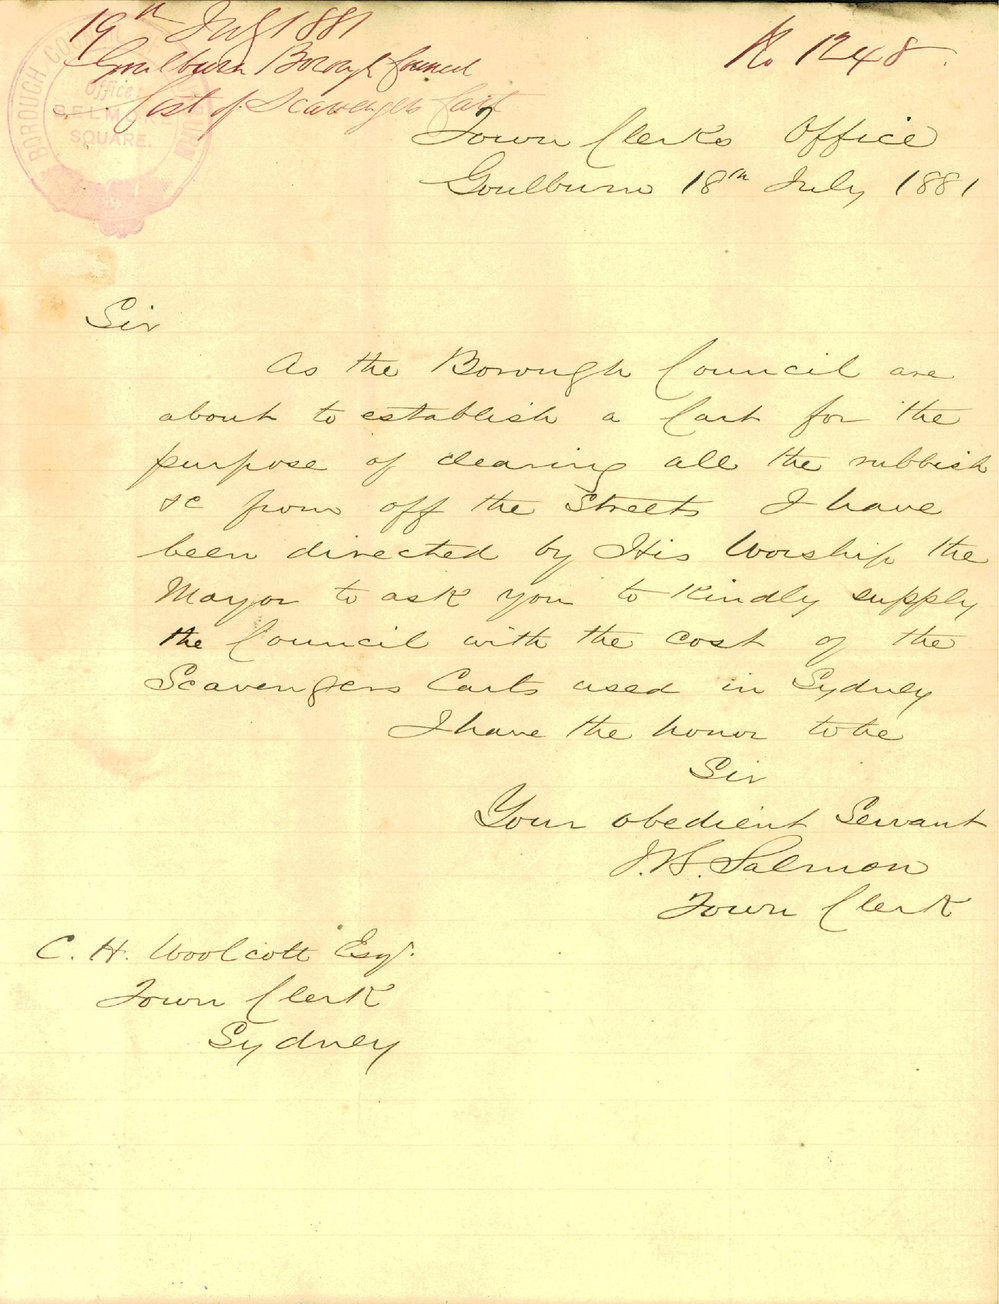 19th July 1881
No 1248
Goulburn Borough Council
Cost of Scavengers Cart
BOROUGH COUNCIL GOULBURN
Office
BELMORE
SQUARE.
Town Clerks Office
Goulburn 18th July 1881
Sir
As the Borough Council are
about to establish a Cart for the
purpose of clearing all the rubbish
&c from off the Streets I have
been directed by His Worship the
Mayor to ask you to kindly supply
the Council with the cost of the
Scavengers Carts used in Sydney
I have the honor to be
Sir
Your obedient Servant
J. H. Salmon
Town Clerk
C. H. Woolcott Esqr.
Town Clerk
Sydney